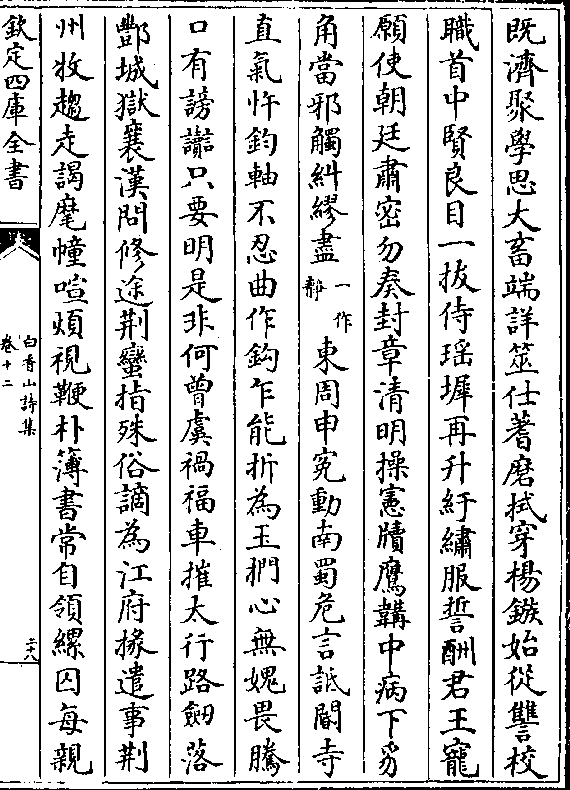 既濟聚學思大畜端詳筮仕蓍磨拭穿楊鏃始從讐校
職首中賢良目一拔侍瑶墀再升紆繡服誓酬君王寵
願使朝廷肅密勿奏封章清明操憲牘鷹韝中病下豸
角當邪觸糾繆盡一作靜東周申寃動南蜀危言詆閽寺
直氣忤鈞軸不忍曲作鈎乍能折為玉捫心無媿畏騰
口有謗讟只要明是非何曾虞禍福車摧太行路劒落
酆城獄襄漢問修途荆蠻指殊俗謫為江府掾遣事荆
州牧趨走謁麾幢喧煩視鞭朴簿書常自領縲囚每親
欽定四庫全書
白香山詩集
卷十二
二十八